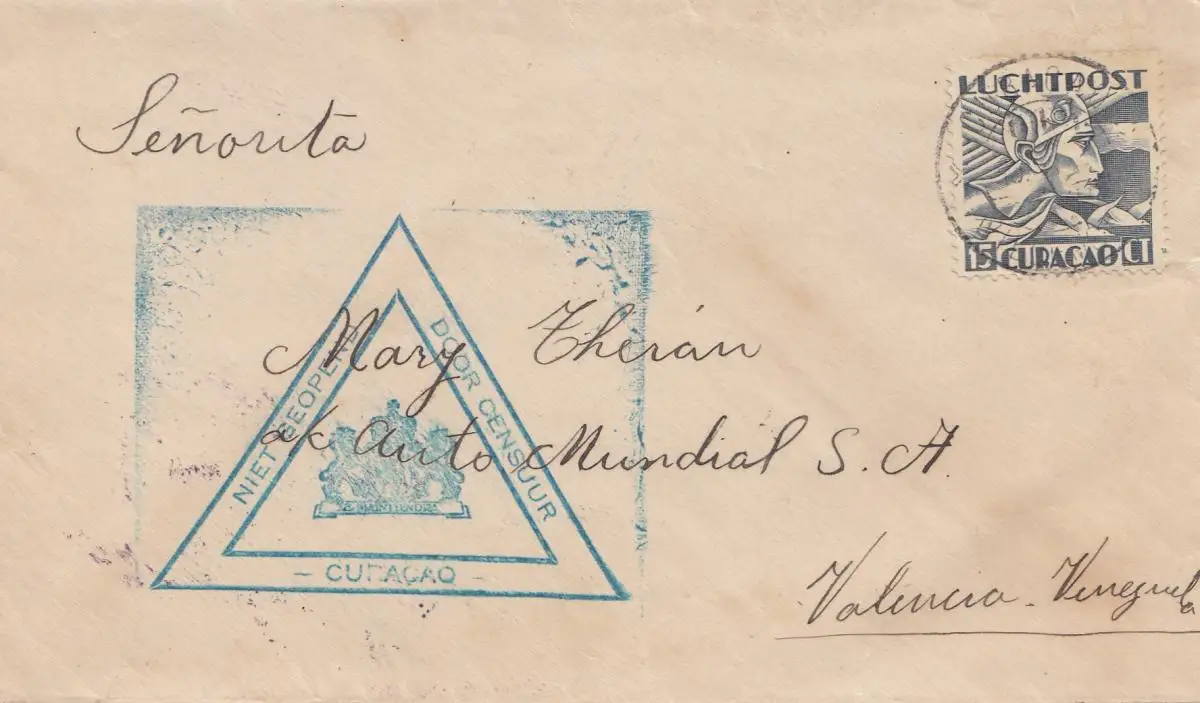 Señorita
LUCHTPOST
15 CURAÇAO CT
Mary Therán
a/c Auto Mundial S. A.
Valencia - Venezuela
NIET GEOPEND
DOOR CENSUUR
- CURAÇAO -